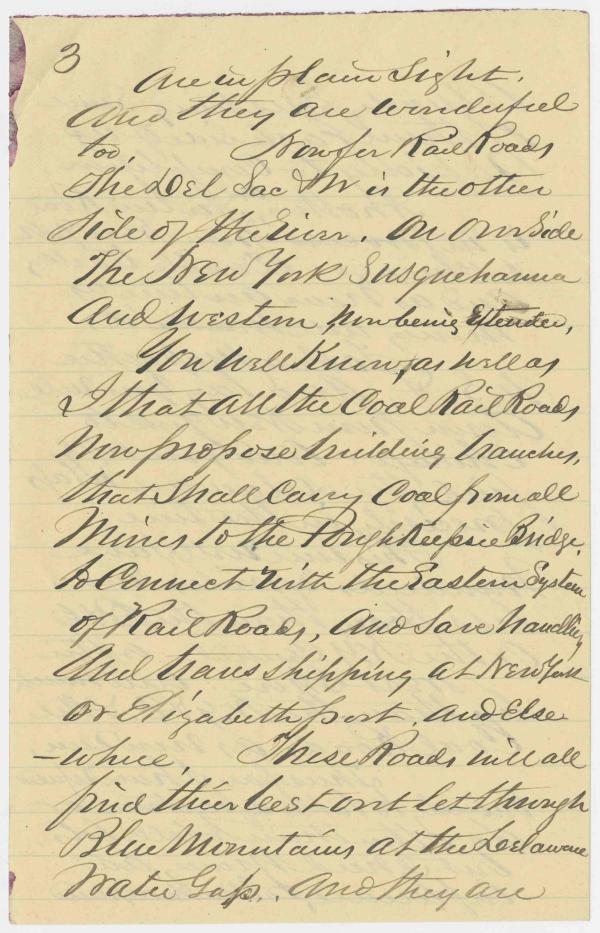 3
Are in plain Sight.
And they are wonderful
too, Now for Rail Roads
The Del Lac & W is the other
Side of the river. On Our Side
The New York Susquehanna
And Western Now being Extended,
You Well Know, as well as
I that all the Coal Rail Roads
Now propose building branches,
that Shall Carry Coal from all
Mines to the Poughkeepsie Bridge.
to Connect With the Eastern System
of Rail Roads, And Save handling
And trans shipping at New York
or Elizabeth port. and Else
-where, These Roads will all
find thier best out let through
Blue Mountains at the Delaware
Water Gap. And they are